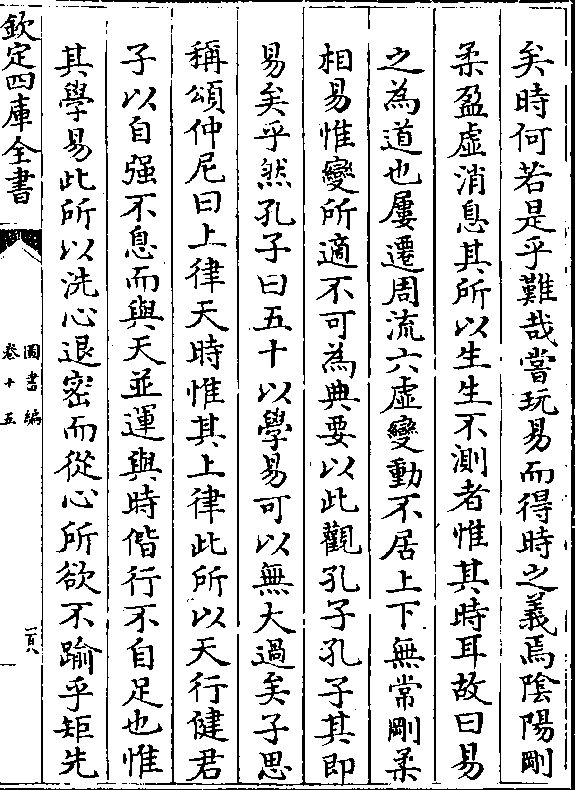 矣時何若是乎難哉嘗玩易而得時之義焉陰陽剛
柔盈虛消息其所以生生不測者惟其時耳故曰易
之為道也屢遷周流六虛變動不居上下無常剛柔
相易惟變所適不可為典要以此觀孔子孔子其即
易矣乎然孔子曰五十以學易可以無大過矣子思
稱頌仲尼曰上律天時惟其上律此所以天行健君
子以自强不息而與天並運與時偕行不自足也惟
其學易此所以洗心退密而從心所欲不踰乎矩先
欽定四庫全書
圖書編
卷十五